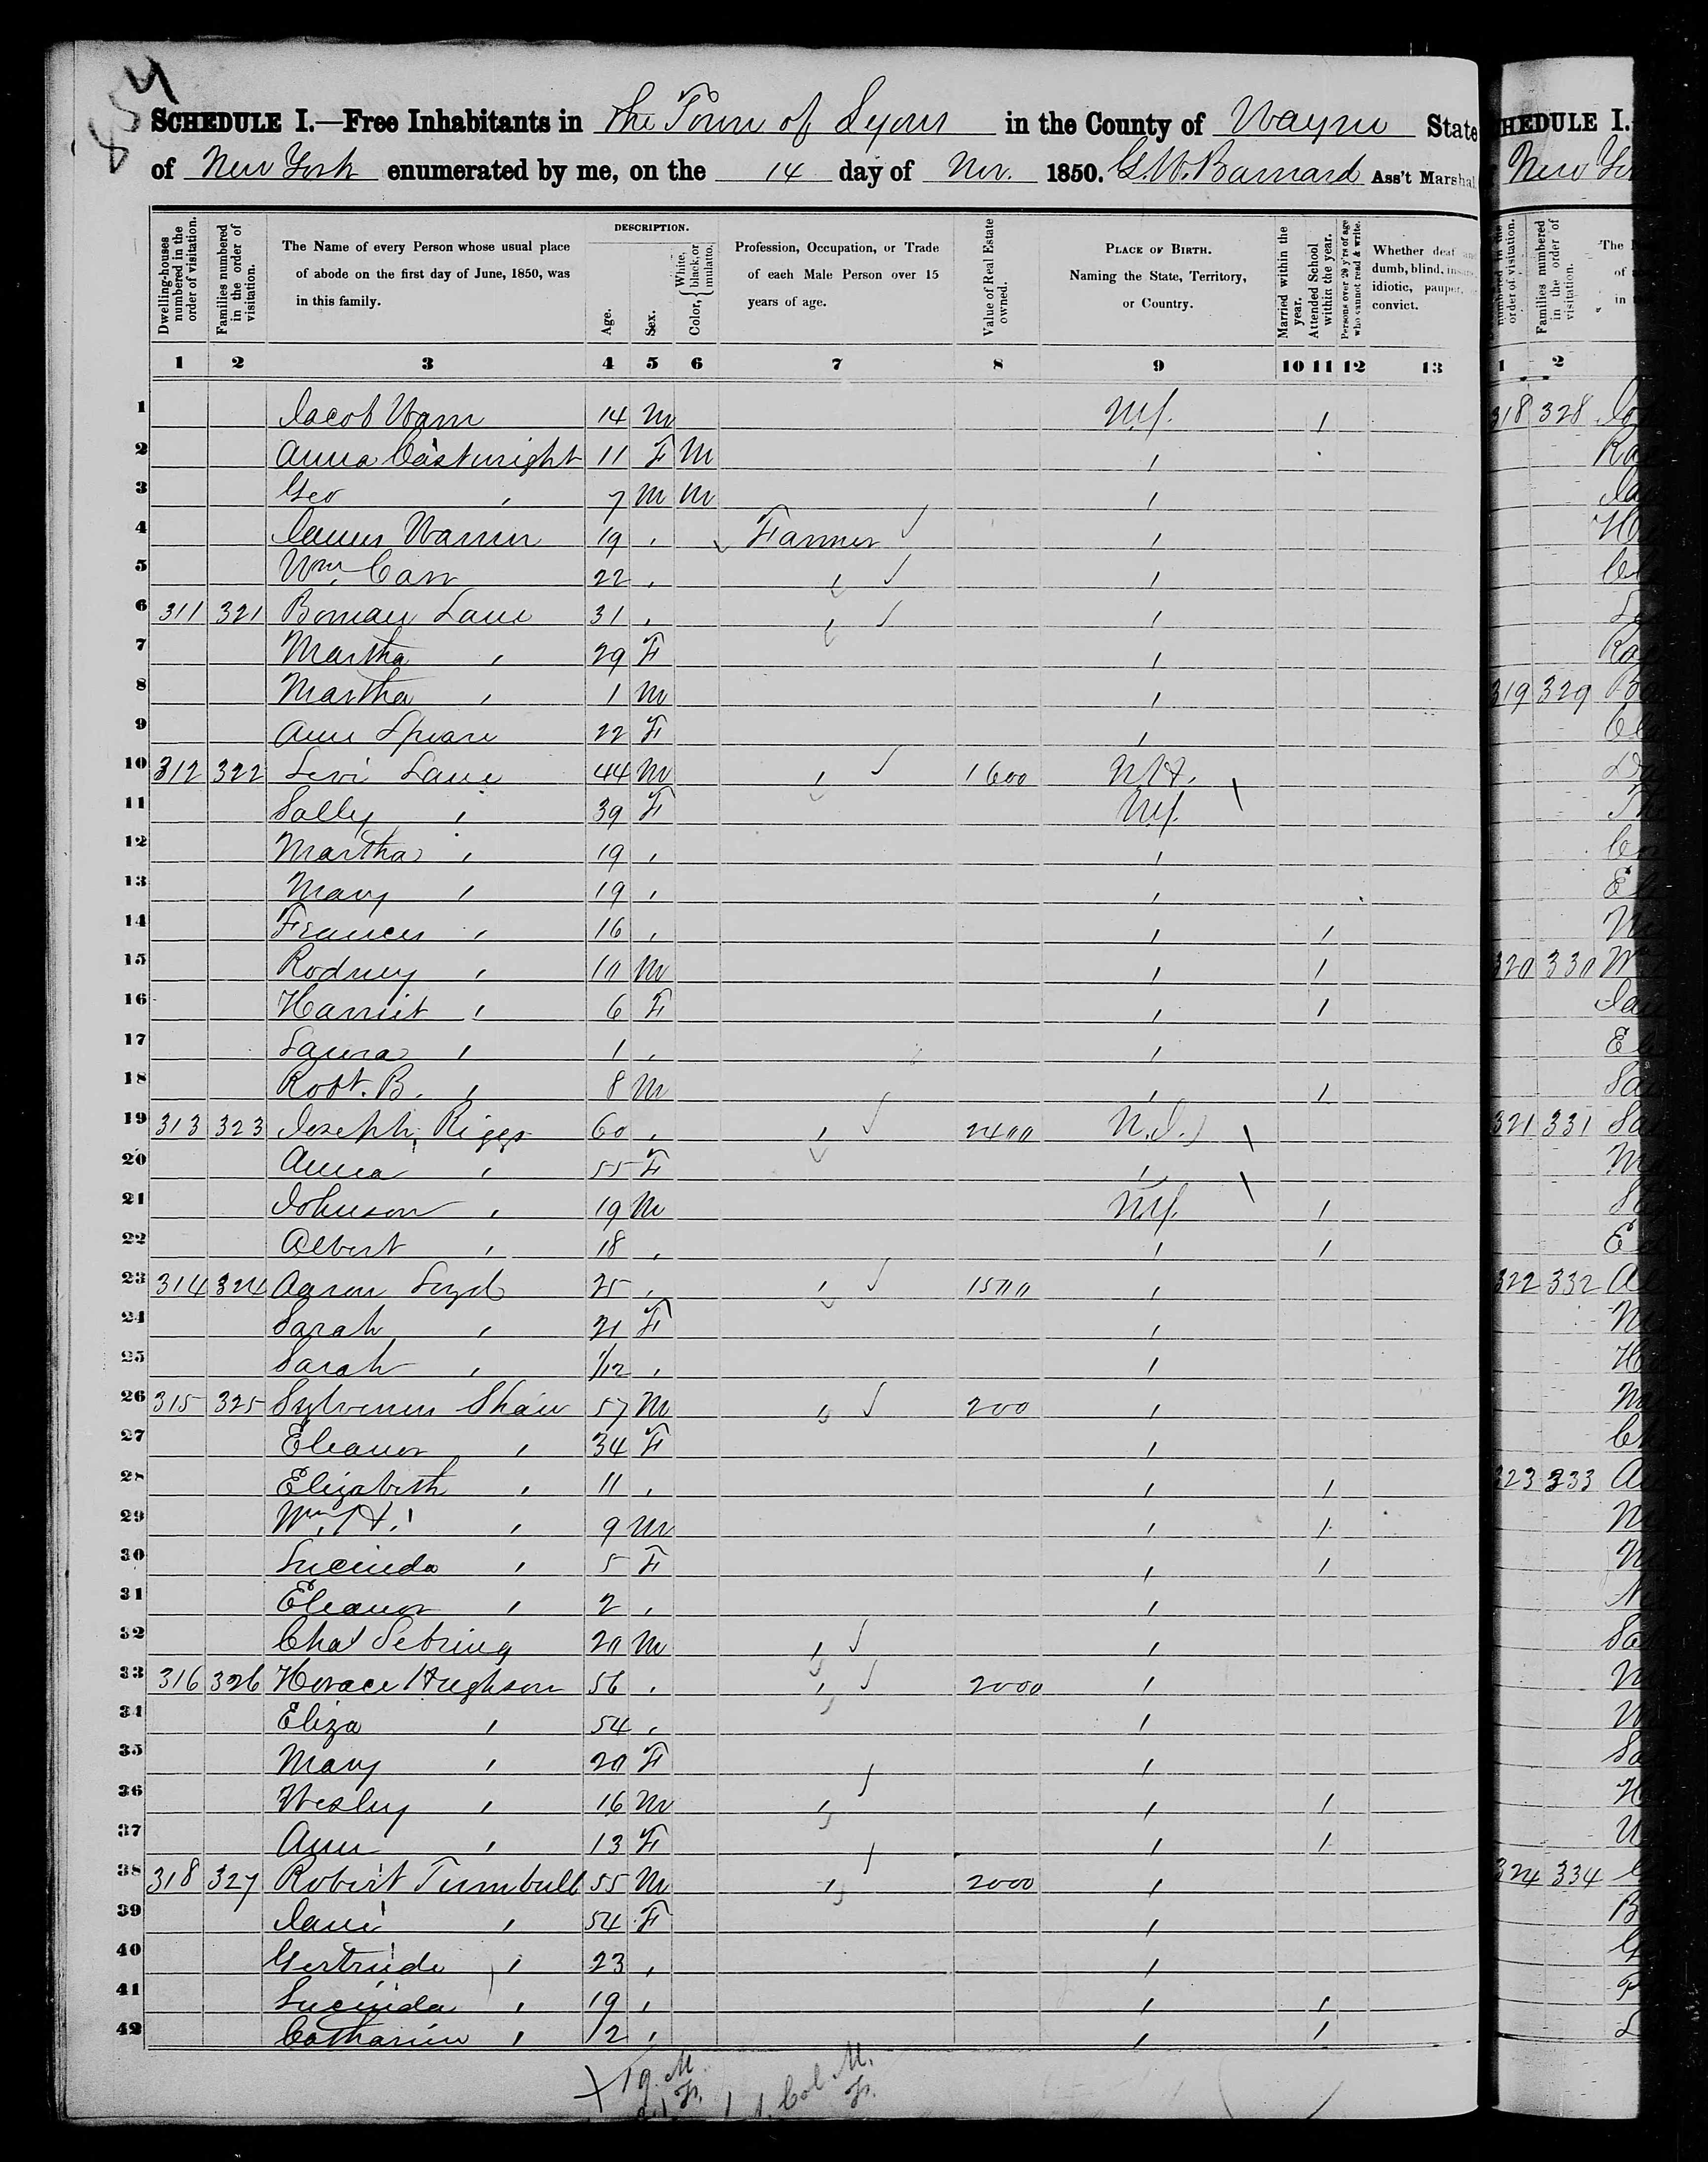 SCHEDULE I.—Free Inhabitants in the Town of Lyons in the County of Wayne State
of New York enumerated by me, on the 14 day of Nov. 1850. G.W. Barnard Ass't Marshal.
Dwelling-houses numbered in the order of visitation.
Families numbered in the order of visitation.
The Name of every Person whose usual place of abode on the first day of June, 1850, was in this family.
DESCRIPTION.
Age.
Sex.
Color, { White, black, or mulatto.
Profession, Occupation, or Trade of each Male Person over 15 years of age.
Value of Real Estate owned.
PLACE OF BIRTH.
Naming the State, Territory, or Country.
Married within the year.
Attended School within the year.
Persons over 20 y'rs of age who cannot read & write.
Whether deaf and dumb, blind, insane, idiotic, pauper, or convict.
1 2 3 4 5 6 7 8 9 10 11 12 13
1 Jacob 14 M N.Y. 1
2 Anna Castwright 11 F M "
3 Geo " 7 M M "
4 James Warren 19 " Farmer "
5 Wm. Carr 22 " " "
6 311 321 Boman Lane 31 " " "
7 Martha " 29 F "
8 Martha " 1 M "
9 Ann Spear 22 F "
10 312 322 Levi Lane 44 M " 1600 N.H.
11 Sally " 39 F N.Y.
12 Martha " 19 " "
13 Mary " 19 " "
14 Frances " 16 " " 1
15 Rodney " 10 M " 1
16 Harriet " 6 F " 1
17 Laura " 1 " "
18 Robt. B. " 8 M " 1
19 313 323 Joseph Riggs 60 " " 2400 N.J.
20 Anna " 55 F "
21 Johnson " 19 M N.Y. 1
22 Albert " 18 " " 1
23 314 324 Aaron Loyd 25 " " 1500 "
24 Sarah " 21 F "
25 Sarah " 1/12 " "
26 315 325 Sylvenus Shaw 57 M " 200 "
27 Eleanor " 34 F "
28 Elizabeth " 11 " " 1
29 Wm. H. " 9 M " 1
30 Lucinda " 5 F " 1
31 Eleanor " 2 " "
32 Chas Sebring 20 M " "
33 316 326 Horace Hughson 56 " " 2000 "
34 Eliza " 54 " "
35 Mary " 20 F "
36 Wesley " 16 M " " 1
37 Ann " 13 F " 1
38 318 327 Robert Turnbull 55 M " 2000 "
39 Jane " 54 F "
40 Gertrude " 23 " "
41 Lucinda " 19 " " 1
42 Catharine " 12 " " 1
19 M.
Col M.
HEDULE I.
New Yor
1 2
318 328
319 329
320 330
321 331
322 332
323 333
324 334